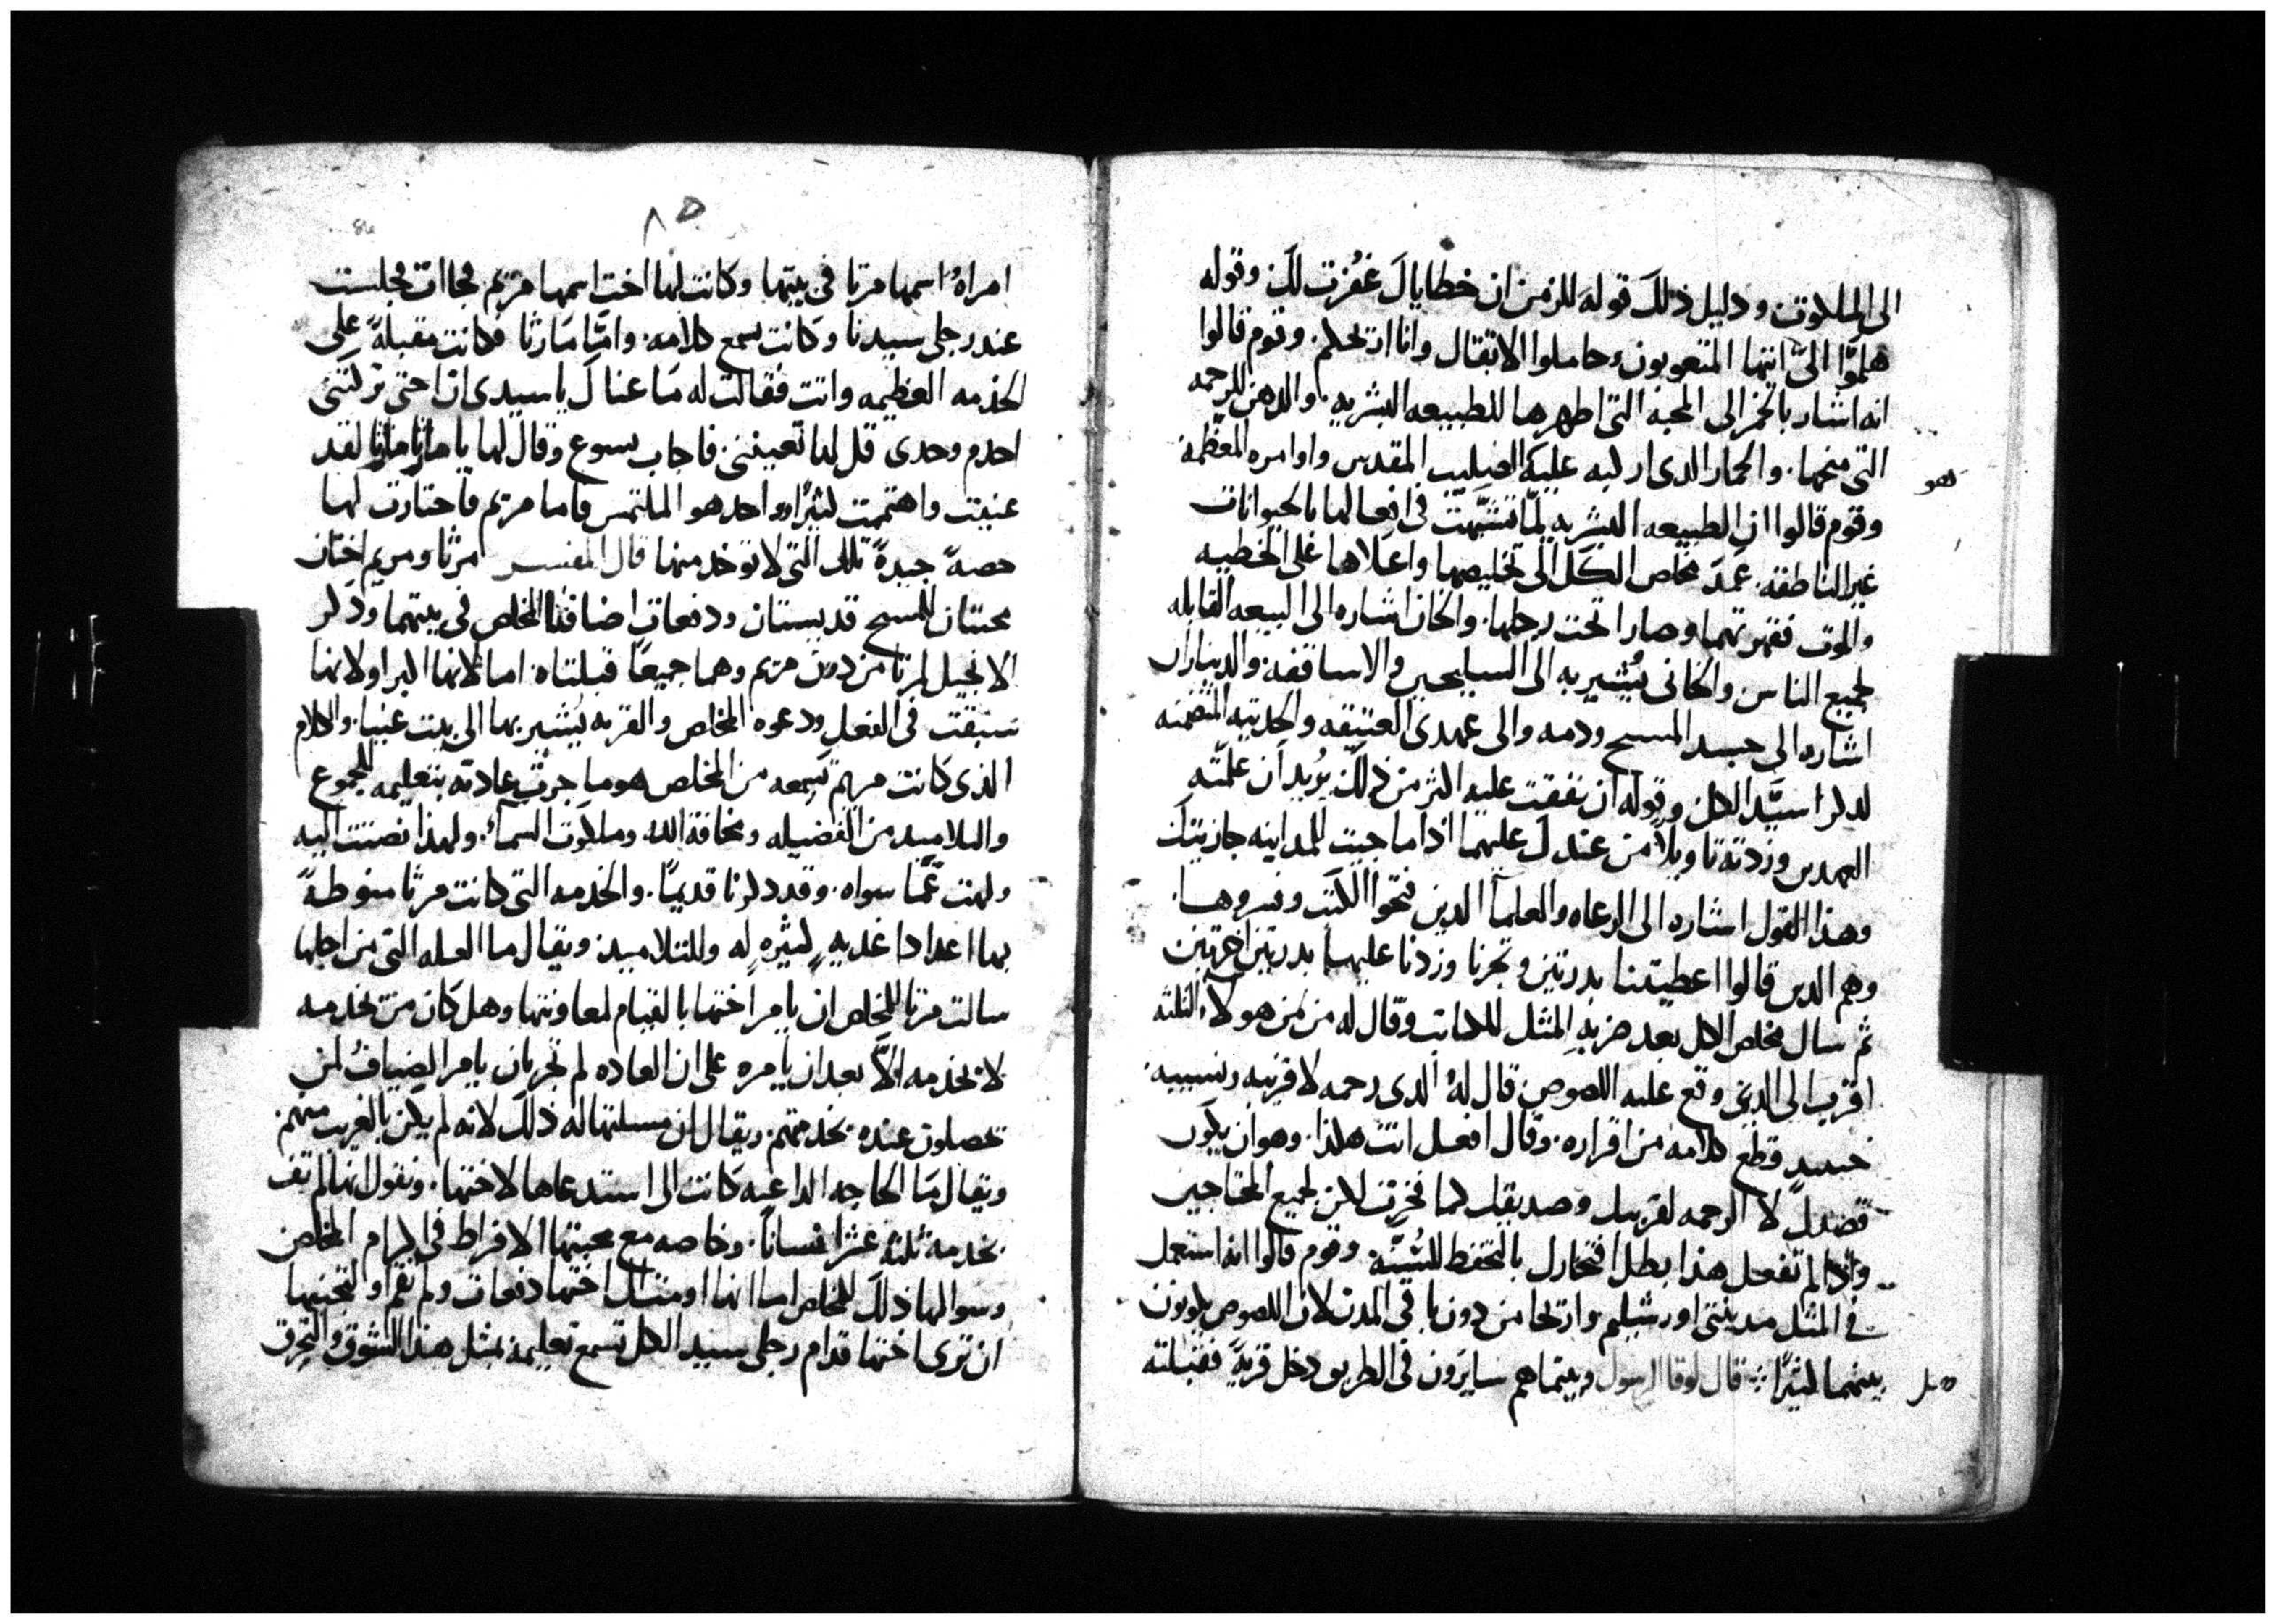 الى الملكوت ودليل ذلك قوله للزمن ان خطاياك غفرت لك وقوله
هلموا الىّ ايتها المتعوبون حاملوا الاثقال وانا اريحكم. وقوم قالوا
انه اشار بالخمر الى المحبه التى اظهرها للطبيعه البشريه. والدهن للرحمه
التى منحها. والحمار الدى اركبه عليه الصليب المقدس واوامره المعظمه
وقوم قالوا ان الطبيعه البشريه لمّا تشبّهت فى افعالها بالحيوانات
غير الناطقه. عمد مخلص الكل الى تخليصها واعلاها على الخطيه
والموت فقهرتهما وصارا تحت رجلها. والخان اشاره الى البيعه القابله
لجميع الناس والخانى يُشير به الى السليحين والاساقفه والديناران
اشاره الى جسد المسيح ودمه والى عهدى العتيقه والحديثه المتضمنه
لدكر سيّد الكل وقوله ان نفقت عليه اكثر من ذلك يُريد ان علمته
العهدين وزدته تاويلاً من عندك عليهما اذا ما جيت للمداينه جازيتك
وهذا القول اشاره الى الرعاه والعلما الدين فتحوا الكتب وفسروها.
وهم الدين قالوا اعطيتنا بدرتين وتجرنا وزدنا عليهما بدرتين اخرتين
ثم سال مخلص الكل بعد ضربهِ المثل للكاتب وقال له من من هولاء الثلثه
اقرب الى الدى وقع عليه اللصوص قال لهُ الدى رحمه لا قريبه ونسيبه.
حينيدٍ قطع كلامه من اقراره. وقال افعل انت هكذا. وهو ان يكون
قصدك لا الرحمه لقريبك وصديقك كما فخرت لكن لجميع المحتاجين
واذا لم تفعل هذا بطل افتخارك بالتحفظ للسُنّه وقوم قالوا انه استعمل
فى المثل مدينتى اورشيلم واريحا من دون باقى المدن لان اللصوص يكونون
بينهما كثيرًا قال لوقا الرسول وبينماهم سايرون فى الطريق دخل قريةً فقبلته
٨٥
امراهُ اسمها مرتا فى بيتها وكانت لها اخت اسمها مريم فجاات فجلست
عند رجلى سيدنا وكانت تسمع كلامه. وامّا مارثا فكانت مقبلةً على
الخدمه العظيمه واتت فقالت له ما عناك يا سيدى ان اختى تركتنى
اخدم وحدى قل لها تعيننى. فاجاب يسوع وقال لها يا مارثا مارثا لقد
عنيت واهتممت كثيرًا وواحد هو الملتمس فاما مريم فاختارت لها
حصةً جيدةً تلك التى لا توخد منها قال المفسر مرثا ومريم اختان
محبتان للمسيح قديستان ودفعات اضافتا المخلص فى بيتهما وذكر
الانجيل لمرتا من دون مريم وهما جميعًا قبلتاه. اما لانها اكبر او لانها
سبقت فى الفعل ودعوه المخلص والقريه يُشير بها الى بيت عنيا. والكلام
الذى كانت مريم تسمعه من المخلص هو ما جرت عادته بتعليمه للجموع
والتلاميد من الفضيله ومخافة الله وملكوت السماء. ولهذا نصتت اليه
ولهت عمّا سواه. وقد دكرنا قديمًا. والخدمه التى كانت مرثا منوطةً
بها اعدادا غديهٍ كثيرهٍ له وللتلاميد ويقال ما العله التى من اجلها
سالت مرتا المخلص ان يامر اختها بالقيام لمعاونتها وهل كان من يخدمه
لا يخدمه الّا بعد ان يامره على ان العاده لم تجر بان يامر الضيافُ لمن
يحصلون عنده بخدمتهم. ويقال ان مسلتها له ذلك لانه لم يكن بالغريب منهم
ويقال ما الحاجه الداعيه كانت الى استدعاها لاختها. ونقول انها لم تف
بخدمة ثلثه عشر انسانًا. وخاصه مع محبتها الافراط فى اكرام المخلص
وسوالها ذلك للمخلص اما انها اومت الى اختها دفعات ولم تقم او لمحبتها
ان ترى اختها قدام رجلى سيد الكل تسمع تعليمه بمثل هذا الشوق والتحرق